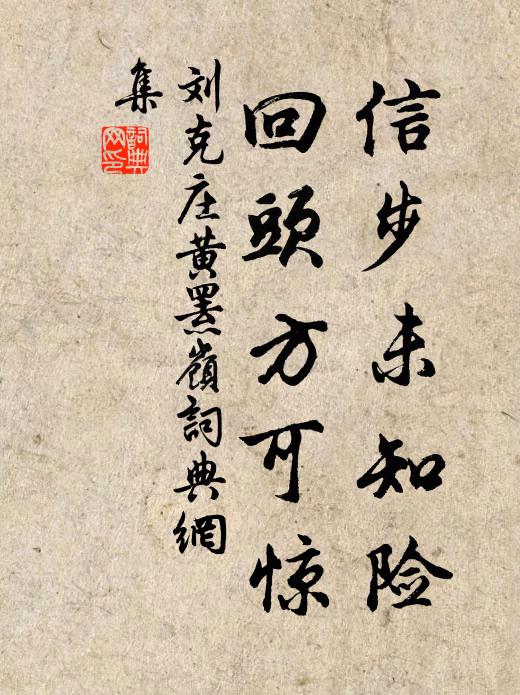 信步未知险
回頭方可惊
刘克庄黄罴嶺詞典網
集
詞典网印